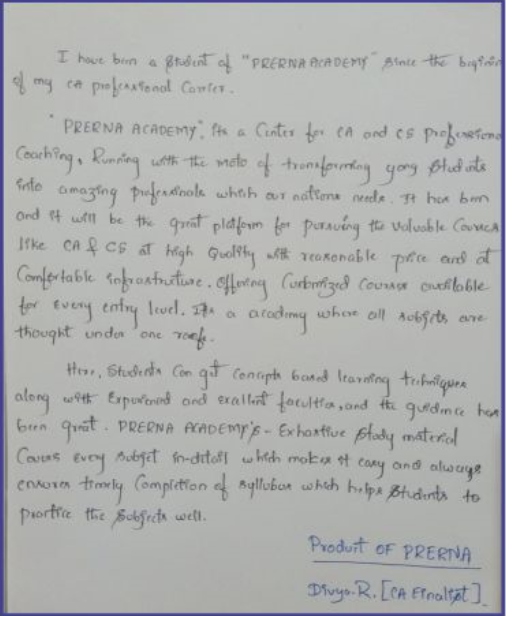 I have been a student of "PRERNA ACADEMY" since the begining
of my CA professional Carrier.
"PRERNA ACADEMY", Its a Center for CA and CS professional
Coaching, Running with the moto of transforming yong students
into amazing professionals which our nations needs. It has been
and it will be the great platform for pursuing the valuable Courses
like CA & CS at high Quality with reasonable price and at
Comfortable infrastructure. Offering Customized Courses available
for every entry level. Its a academy where all subjects are
thought under one roofe.
Here, Students Can get concepts based learning techniques
along with Experienced and excellent faculties, and the guidence has
been great. PRERNA ACADEMY's - Exhastive study material
Covers every subject in-detail which makes it easy and always
ensures timely Completion of syllabus which helps students to
practice the subjects well.
Product OF PRERNA
Divya.R. [CA Finalist]